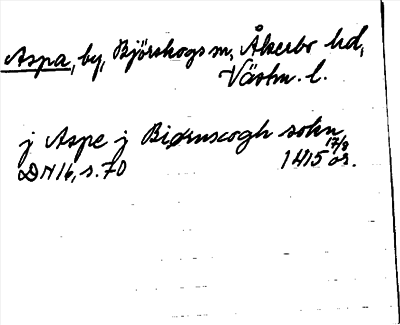 Aspa, by, Björskogs sn, Åkerbo hd,
Västm. l.
j Aspe j Biørnscogh sokn
17/8
DN 16, s. 70 1415 or.